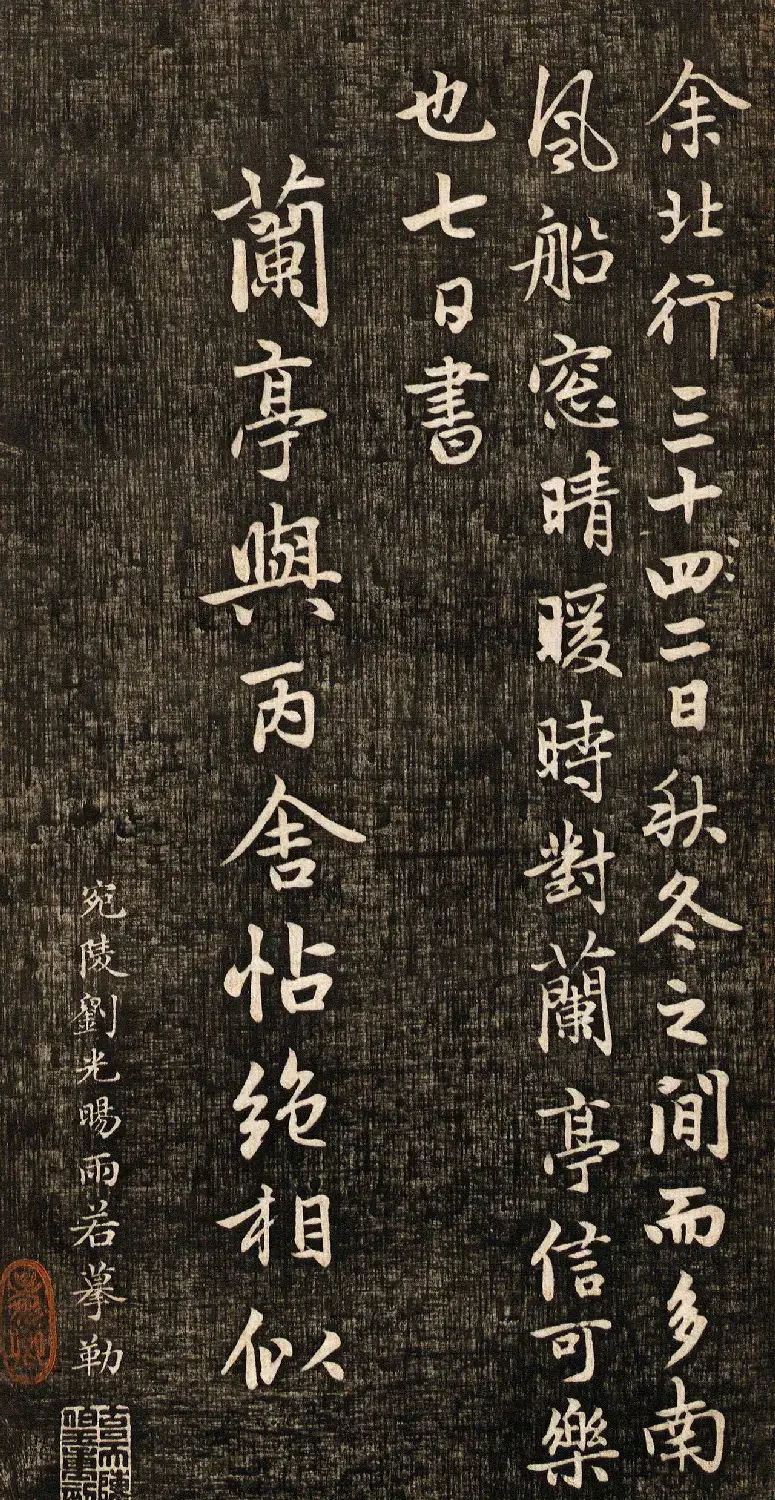 余北行三十四二日秋冬之間而多南
風船窓晴暖時對蘭亭信可樂
也七日書
蘭亭與丙舍帖絶相似
宛陵劉光暘雨若摹勒